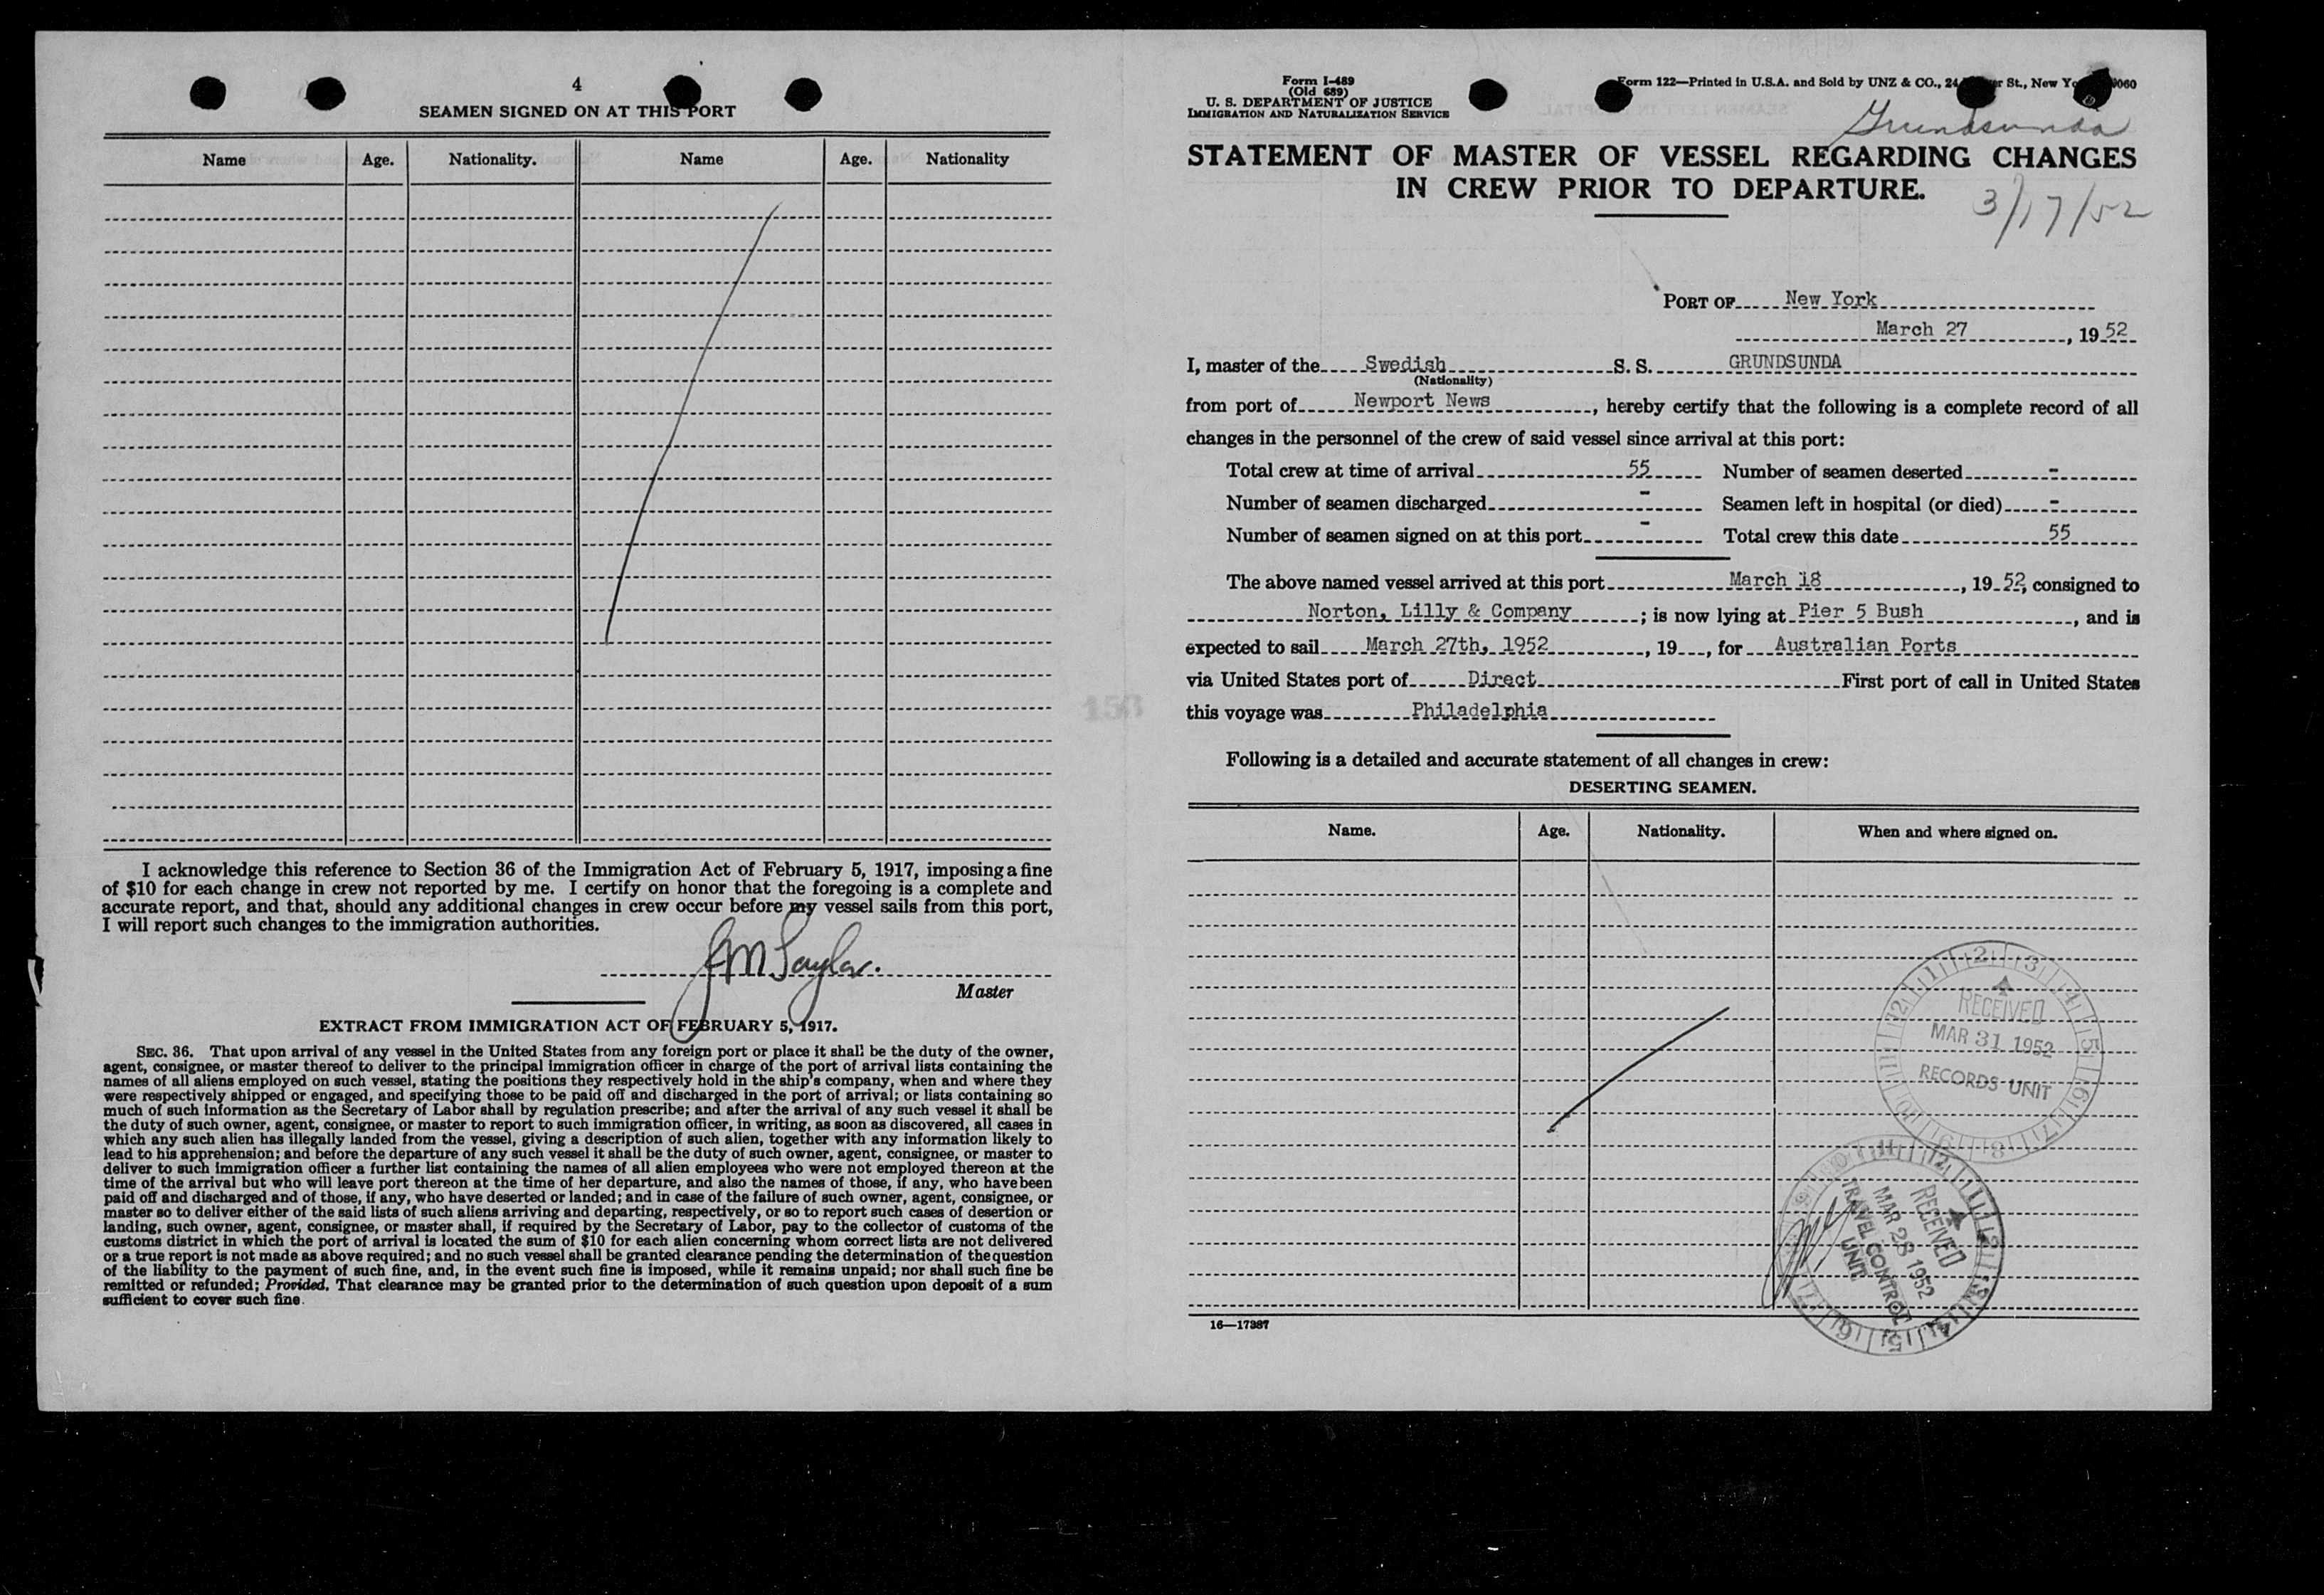 4
SEAMEN SIGNED ON AT THIS PORT
Name Age. Nationality. Name Age. Nationality
I acknowledge this reference to Section 36 of the Immigration Act of February 5, 1917, imposing a fine
of $10 for each change in crew not reported by me. I certify on honor that the foregoing is a complete and
accurate report, and that, should any additional changes in crew occur before my vessel sails from this port,
I will report such changes to the immigration authorities.
Master
EXTRACT FROM IMMIGRATION ACT OF FEBRUARY 5, 1917.
SEC. 36. That upon arrival of any vessel in the United States from any foreign port or place it shall be the duty of the owner,
agent, consignee, or master thereof to deliver to the principal immigration officer in charge of the port of arrival lists containing the
names of all aliens employed on such vessel, stating the positions they respectively hold in the ship's company, when and where they
were respectively shipped or engaged, and specifying those to be paid off and discharged in the port of arrival; or lists containing so
much of such information as the Secretary of Labor shall by regulation prescribe; and after the arrival of any such vessel it shall be
the duty of such owner, agent, consignee, or master to report to such immigration officer, in writing, as soon as discovered, all cases in
which any such alien has illegally landed from the vessel, giving a description of such alien, together with any information likely to
lead to his apprehension; and before the departure of any such vessel it shall be the duty of such owner, agent, consignee, or master to
deliver to such immigration officer a further list containing the names of all alien employees who were not employed thereon at the
time of the arrival but who will leave port thereon at the time of her departure, and also the names of those, if any, who have been
paid off and discharged and of those, if any, who have deserted or landed; and in case of the failure of such owner, agent, consignee, or
master so to deliver either of the said lists of such aliens arriving and departing, respectively, or so to report such cases of desertion or
landing, such owner, agent, consignee, or master shall, if required by the Secretary of Labor, pay to the collector of customs of the
customs district in which the port of arrival is located the sum of $10 for each alien concerning whom correct lists are not delivered
or a true report is not made as above required; and no such vessel shall be granted clearance pending the determination of the question
of the liability to the payment of such fine, and, in the event such fine is imposed, while it remains unpaid; nor shall such fine be
remitted or refunded; Provided, That clearance may be granted prior to the determination of such question upon deposit of a sum
sufficient to cover such fine.
Form I-489
(Old 689)
U. S. DEPARTMENT OF JUSTICE
IMMIGRATION AND NATURALIZATION SERVICE
Form 122—Printed in U.S.A. and Sold by UNZ & CO., 24 St., New
Grundsunda
STATEMENT OF MASTER OF VESSEL REGARDING CHANGES
IN CREW PRIOR TO DEPARTURE.
3/17/52
PORT OF New York
March 27, 1952
I, master of the Swedish S. S. GRUNDSUNDA
(Nationality)
from port of Newport News, hereby certify that the following is a complete record of all
changes in the personnel of the crew of said vessel since arrival at this port:
Total crew at time of arrival 55 Number of seamen deserted -
Number of seamen discharged - Seamen left in hospital (or died) -
Number of seamen signed on at this port - Total crew this date 55
The above named vessel arrived at this port March 18, 1952, consigned to
Norton, Lilly & Company; is now lying at Pier 5 Bush, and is
expected to sail March 27th, 1952, 19, for Australian Ports
via United States port of Direct First port of call in United States
this voyage was Philadelphia
Following is a detailed and accurate statement of all changes in crew:
DESERTING SEAMEN.
Name. Age. Nationality. When and where signed on.
RECEIVED
MAR 31 1952
RECORDS UNIT
RECEIVED
MAR 28 1952
TRAVEL CONTROL
UNIT
16—17387